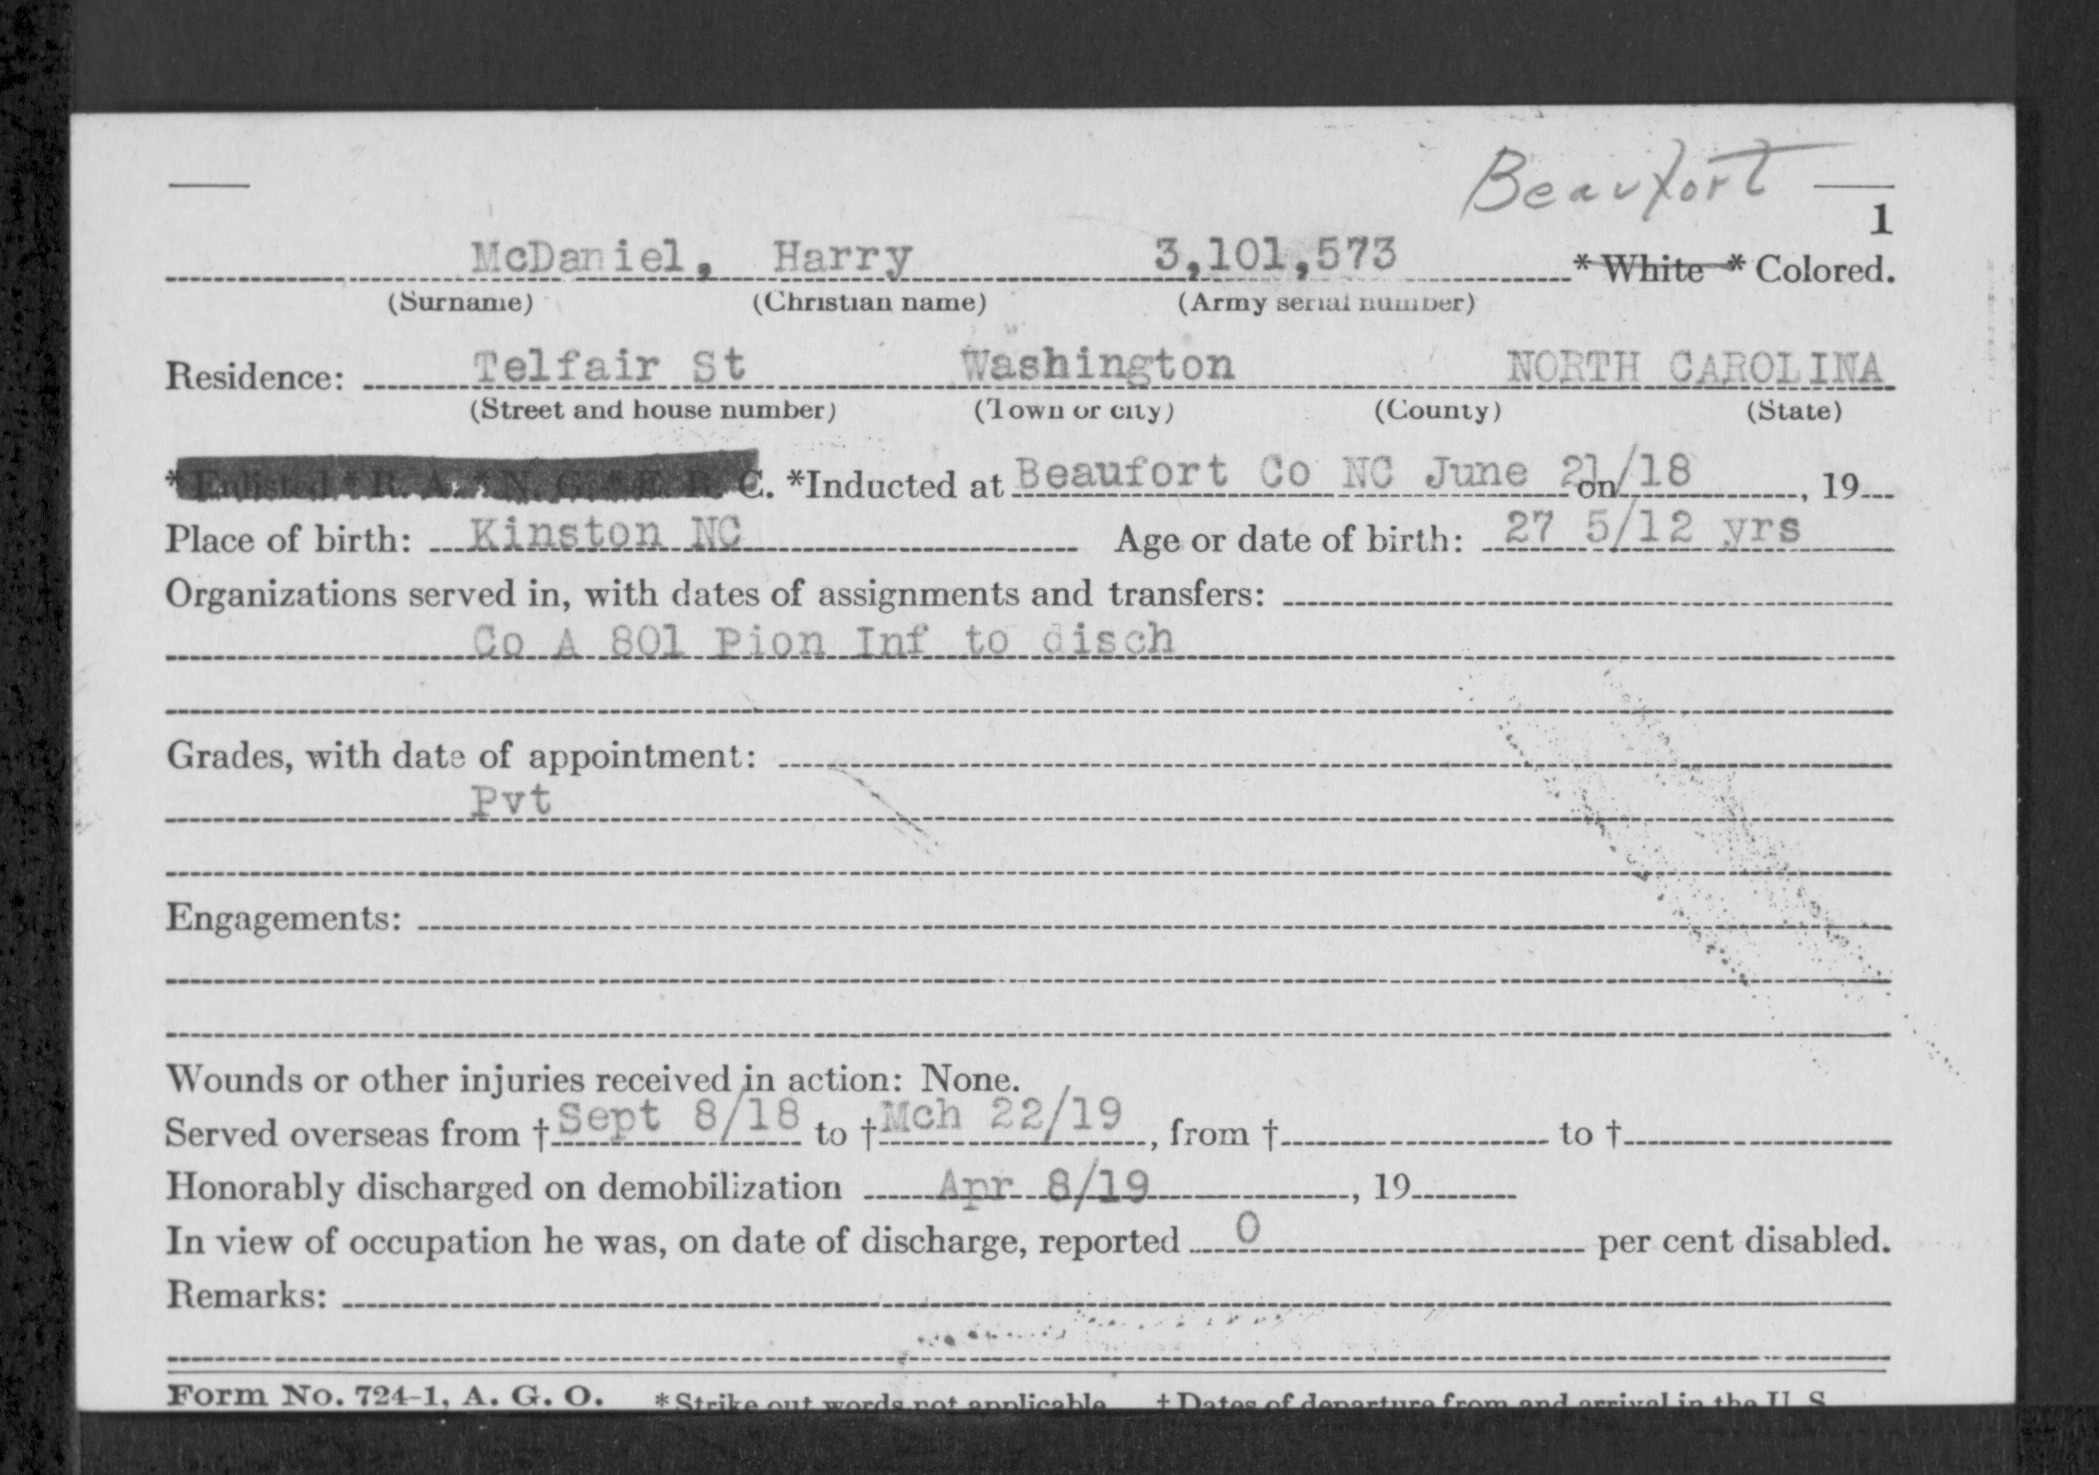 Beaufort
1
McDaniel, Harry 3,101,573 * White * Colored.
(Surname) (Christian name) (Army serial number)
Residence: Telfair St Washington NORTH CAROLINA
(Street and house number) (Town or city) (County) (State)
* Enlisted * R. A. * N. G. * E. R. C. *Inducted at Beaufort Co NC June 21/18 on , 19
Place of birth: Kinston NC Age or date of birth: 27 5/12 yrs
Organizations served in, with dates of assignments and transfers:
Co A 801 Pion Inf to disch
Grades, with date of appointment:
Pvt
Engagements:
Wounds or other injuries received in action: None.
Served overseas from † Sept 8/18 to † Mch 22/19, from † to †
Honorably discharged on demobilization Apr 8/19, 19
In view of occupation he was, on date of discharge, reported 0 per cent disabled.
Remarks:
Form No. 724-1, A. G. O. * Strike out words not applicable † Dates of departure from and arrival in the U. S.